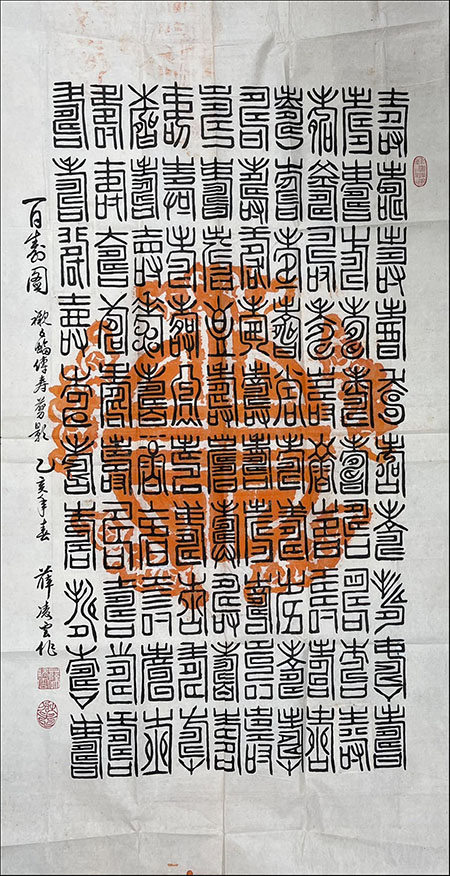 壽壽壽壽壽壽壽壽壽壽
壽壽壽壽壽壽壽壽壽壽
壽壽壽壽壽壽壽壽壽壽
壽壽壽壽壽壽壽壽壽壽
壽壽壽壽壽壽壽壽壽壽
壽壽壽壽壽壽壽壽壽壽
壽壽壽壽壽壽壽壽壽壽
壽壽壽壽壽壽壽壽壽壽
壽壽壽壽壽壽壽壽壽壽
壽壽壽壽壽壽壽壽壽壽
百壽圖 襯蝠壽剪影 乙亥年春 薛凌雲作